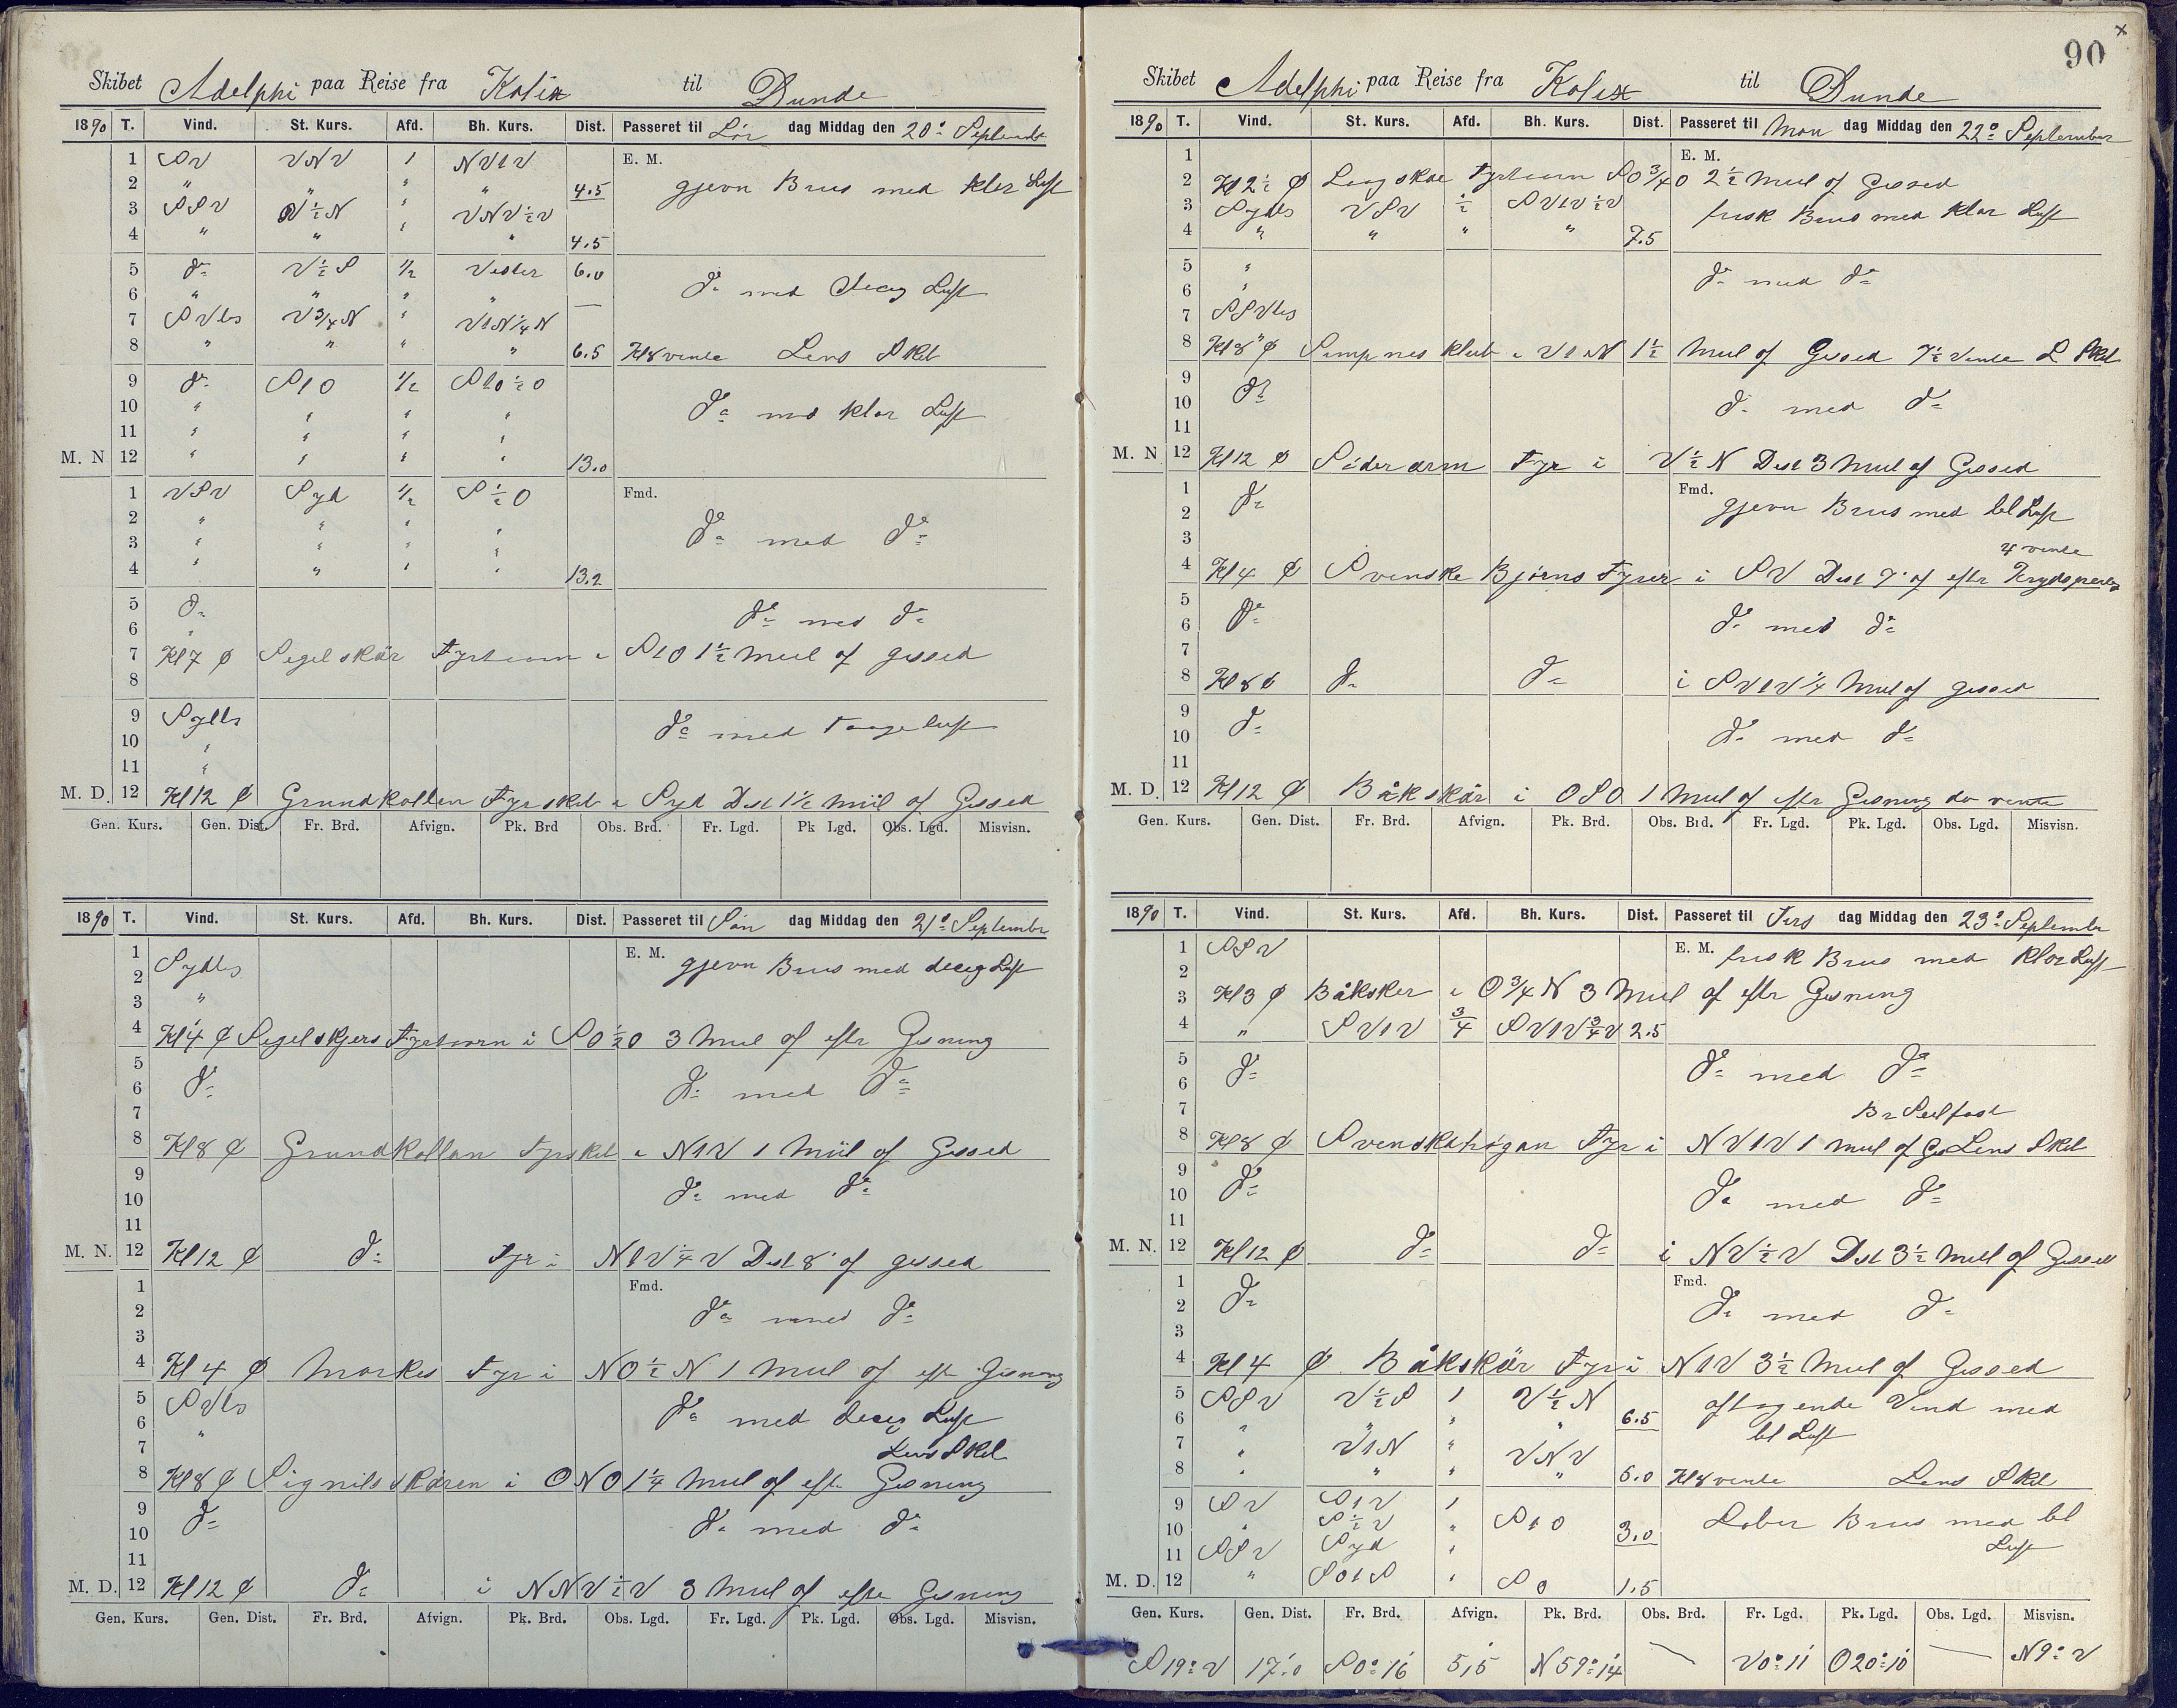 Skibet Adelphi paa Reise fra Kalix til Dunde
1890 T. Vind. St. Kurs. Afd. Bh. Kurs. Dist. Passeret til Lör dag Middag den 20de September
1 SV VNV 1 NV1V E. M.
2 " " " " 4.5 gjevn Bris med klar Luft
3 SSV V½N " VNV½V
4 " " " " 4.5
5 do V½S ½ Vester 6.0
6 " " " " — do med Deceg Luft
7 SVls V¾N " V1N¼N
8 " " " " 6.5 Kl8 vente Lens Skib
9 do S1O ½ S1O½O
10 " " " " do med klar Luft
11 " " " "
M. N 12 " " " " 13.0
1 VSV Syd ½ S½O Fmd.
2 " " " " do med do
3 " " " "
4 " " " " 13.2
5 do
6 " do med do
7 Kl 7 ¢ Segelskär Fyrtaarn i S1O 1½ Miil af gissed
8
9 Sydls
10 " do med Taageluft
11 "
M. D. 12 Kl 12 ¢ Grundkallen Fyrskib i Syd Dist 1½ Miil af Gissed
Gen. Kurs. Gen. Dist. Fr. Brd. Afvign. Pk. Brd Obs. Brd. Fr. Lgd. Pk Lgd. Obs. Lgd. Misvisn.
1890 T. Vind. St. Kurs. Afd. Bh. Kurs. Dist. Passeret til Sön dag Middag den 21de September
1 E. M.
2 Sydls gjevn Bris med deceg Luft
3 "
4 Kl 4 ¢ Segelskjers Fyrtaarn i SO½O 3 Miil af eftr Gisning
5
6 do do med do
7
8 Kl 8 ¢ Grundkallan Fyrskib i N1V 1 Miil af Gissed
9
10 do med do
11
M. N. 12 Kl 12 ¢ do Fyr i N1V¼V Dist 8' af gissed
1 Fmd.
2 do med do
3
4 Kl 4 ¢ Markes Fyr i NO½N 1 Miil af eftr Gisning
5 SVls
6 " do med deceg Luft
7 Lens Skib
8 Kl 8 ¢ Signilsskären i ONO 1¼ Miil af eftr Gisning
9 do
10 do med do
11
M. D. 12 Kl 12 ¢ do i NNV½V 3 Miil af eftr Gisning
Gen. Kurs. Gen. Dist. Fr. Brd. Afvign. Pk. Brd. Obs. Lgd. Fr. Lgd. Pk. Lgd. Obs. Lgd. Misvisn.
90
Skibet Adelphi paa Reise fra Kalix til Dunde
1890 T. Vind. St. Kurs. Afd. Bh. Kurs. Dist. Passeret til Man dag Middag den 22de September
1 E. M.
2 Kl 2½ ¢ Lagskae Fyrtaarn SO¾O 2½ Miil af Gissed
3 Sydls VSV ½ SV1V½V frisk Bris med klar Luft
4 " " " " 7.5
5 "
6 " do med do
7 SSVls
8 Kl 8 ¢ Simpnesklub i V1N 1½ Miil af Gissed 7½ Vente L Skib
9
10 do do med do
11
M. N 12 Kl 12 ¢ Söderarm Fyr i V½N Dist 3 Miil af Gissed
1 Fmd.
2 do gjevn Bris med bl Luft
3 4 vente
4 Kl 4 ¢ Svenske Björns Fyrer i SV Dist 7' af eftr Krydspeiling
5
6 do do med do
7
8 Kl 8 ¢ do do i SV1V¼ Miil af gissed
9
10 do do med do
11
M. D. 12 Kl 12 ¢ Båkskär i OSO 1 Miil af eftr Gisning da vente
Gen. Kurs. Gen. Dist. Fr. Brd. Afvign. Pk. Brd. Obs. Brd. Fr. Lgd. Pk. Lgd. Obs. Lgd. Misvisn.
1890 T. Vind. St. Kurs. Afd. Bh. Kurs. Dist. Passeret til Tirs dag Middag den 23de September
1 SSV E. M. frisk Bris med klar Luft
2
3 Kl 3 ¢ Båksker i O¾N 3 Miil af eftr Gisning
4 " SV1V ¾ SV1V¾V 2.5
5
6 do do med do
7 Br Seil fast
8 Kl 8 ¢ Svenskahögan Fyr i NV1V 1 Miil af Gis Lens Skib
9
10 do do med do
11
M. N. 12 Kl 12 ¢ do do i NV½V Dist 3½ Miil af Gissed
1 Fmd.
2 do do med do
3
4 Kl 4 ¢ Båkskär Fyr i N1V 3½ Miil af Gissed
5 SSV V½S 1 V½N aftagende Vind med
6 " " " " 6.5 bl Luft
7 " V1N " VNV
8 " " " " 6.0 Kl 8 vente Lens Skib
9 SV S1V 1
10 " S½V " S1O 3.0 Laber Bris med bl
11 SSV Syd " Luft
M. D. 12 " SO1S " SO 1.5
Gen. Kurs. Gen. Dist. Fr. Brd. Afvign. Pk. Brd. Obs. Brd. Fr. Lgd. Pk. Lgd. Obs. Lgd. Misvisn.
S19°V 17'.0 S0°16' 5,5 N59°14' — V0°11' O20°10' — N9°V